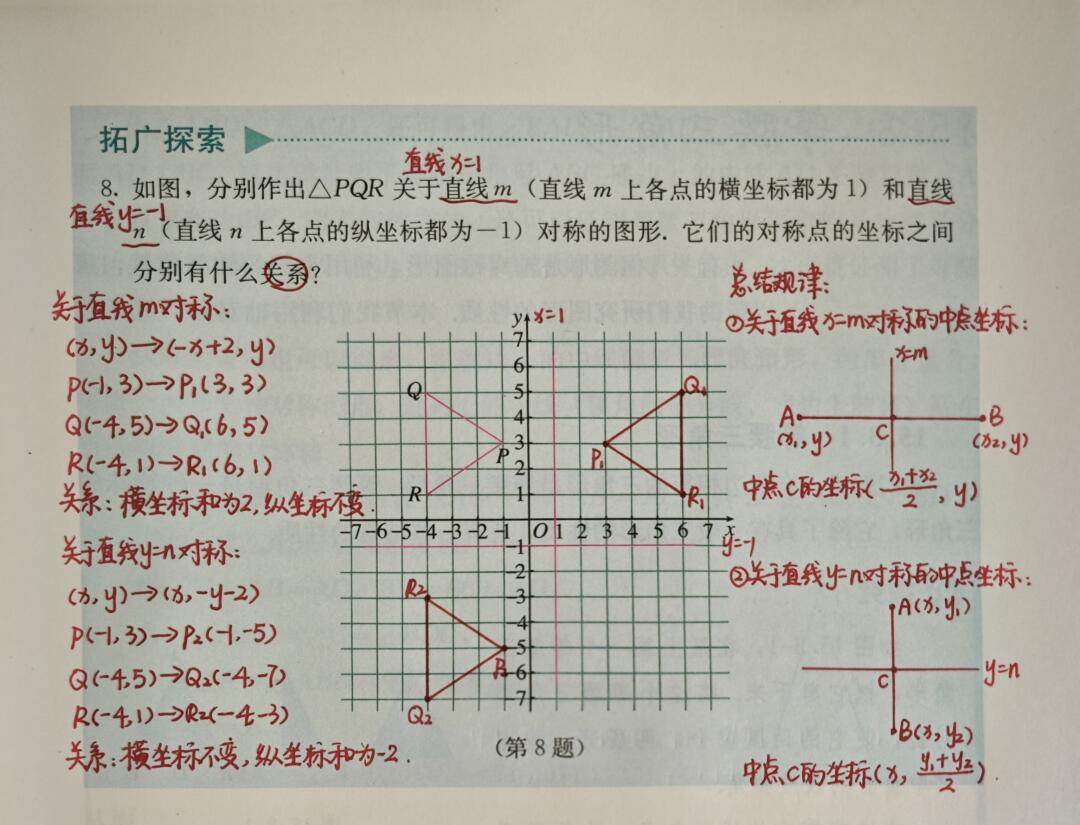 拓广探索
直线x=1
8. 如图，分别作出△PQR 关于直线 m（直线 m 上各点的横坐标都为 1）和直线
直线y=-1
n（直线 n 上各点的纵坐标都为－1）对称的图形. 它们的对称点的坐标之间
分别有什么关系?
关于直线m对称:
(x,y)→(-x+2, y)
P(-1,3)→P₁(3,3)
Q(-4,5)→Q₁(6,5)
R(-4,1)→R₁(6,1)
关系: 横坐标和为2, 纵坐标不变.
关于直线y=n对称:
(x,y)→(x,-y-2)
P(-1,3)→P₂(-1,-5)
Q(-4,5)→Q₂(-4,-7)
R(-4,1)→R₂(-4,-3)
关系: 横坐标不变, 纵坐标和为-2.
y x=1
7
6
5
4
3
2
1
Q
P
R
Q₁
P₁
R₁
7 -6 -5 -4 -3 -2 -1 O 2 3 4 5 6 7 x
y=-1
-1
2
-3
-4
5
-6
-7
R₂
P₂
Q₂
(第 8 题)
总结规律:
①关于直线x=m对称的中点坐标:
x=m
A C B
(x₁,y) (x₂,y)
中点C的坐标(x₁+x₂/2, y)
②关于直线y=n对称的中点坐标:
A(x,y₁)
C y=n
B(x,y₂)
中点C的坐标(x, y₁+y₂/2).